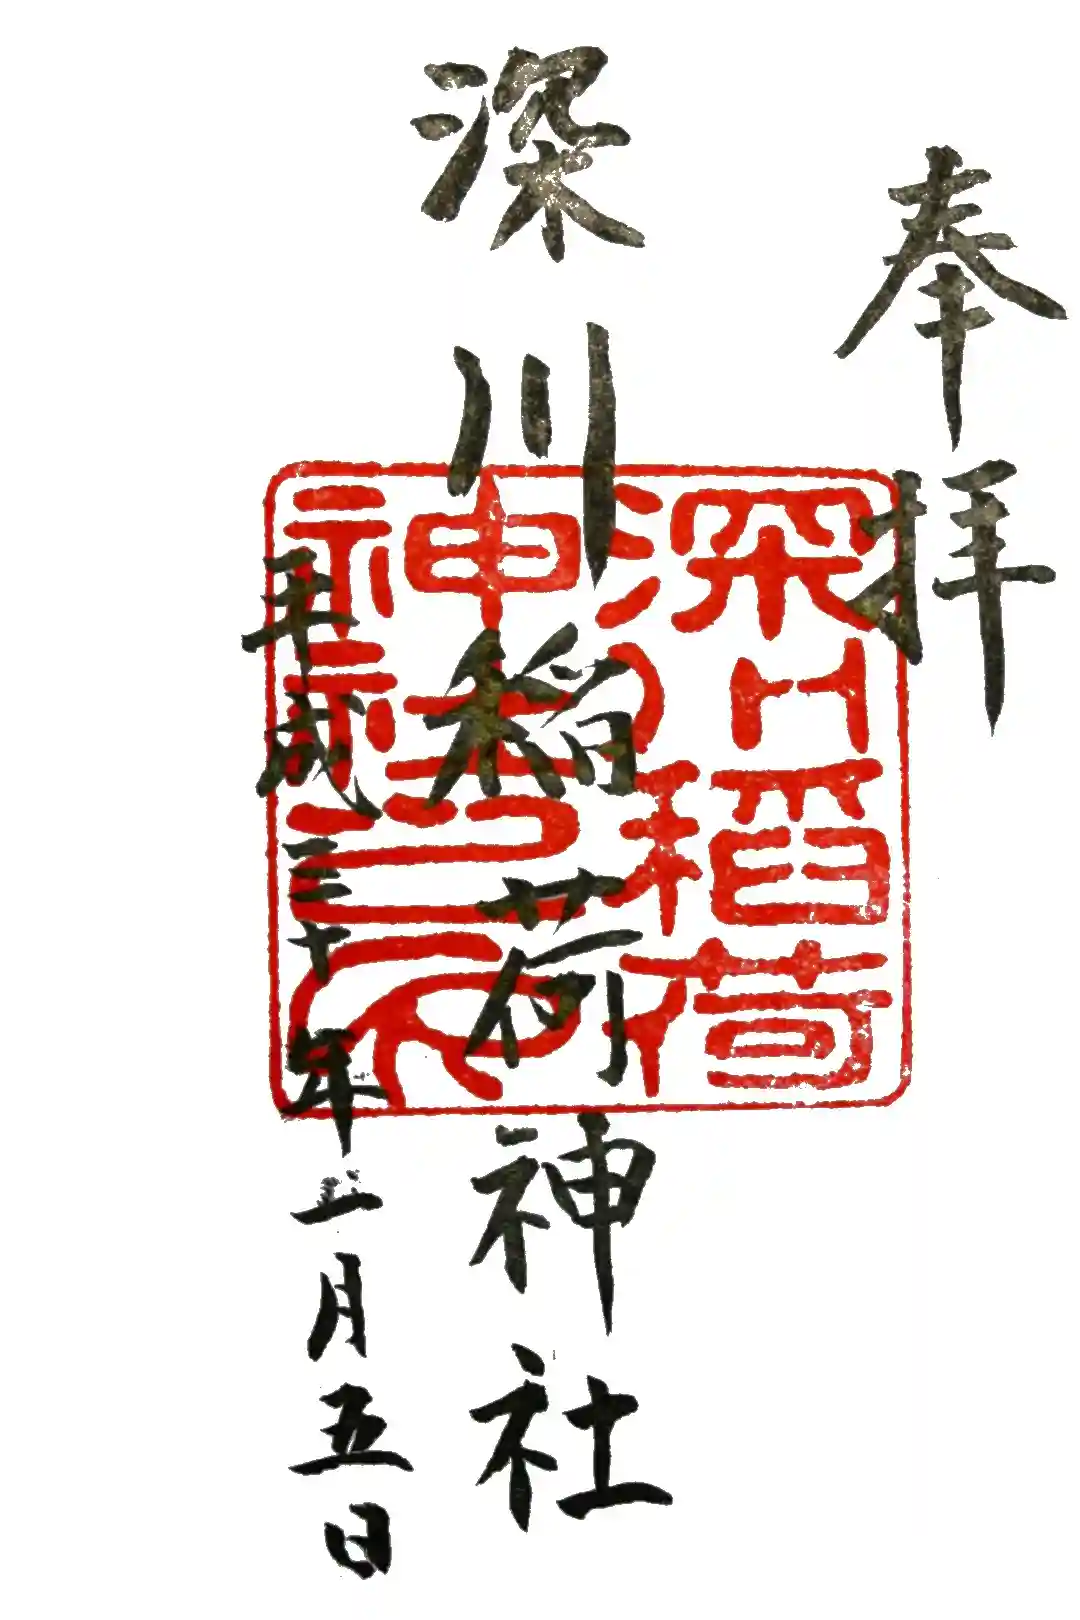 奉拝
深川稲荷神社
平成三十年一月五日
深川稲荷
神社之印